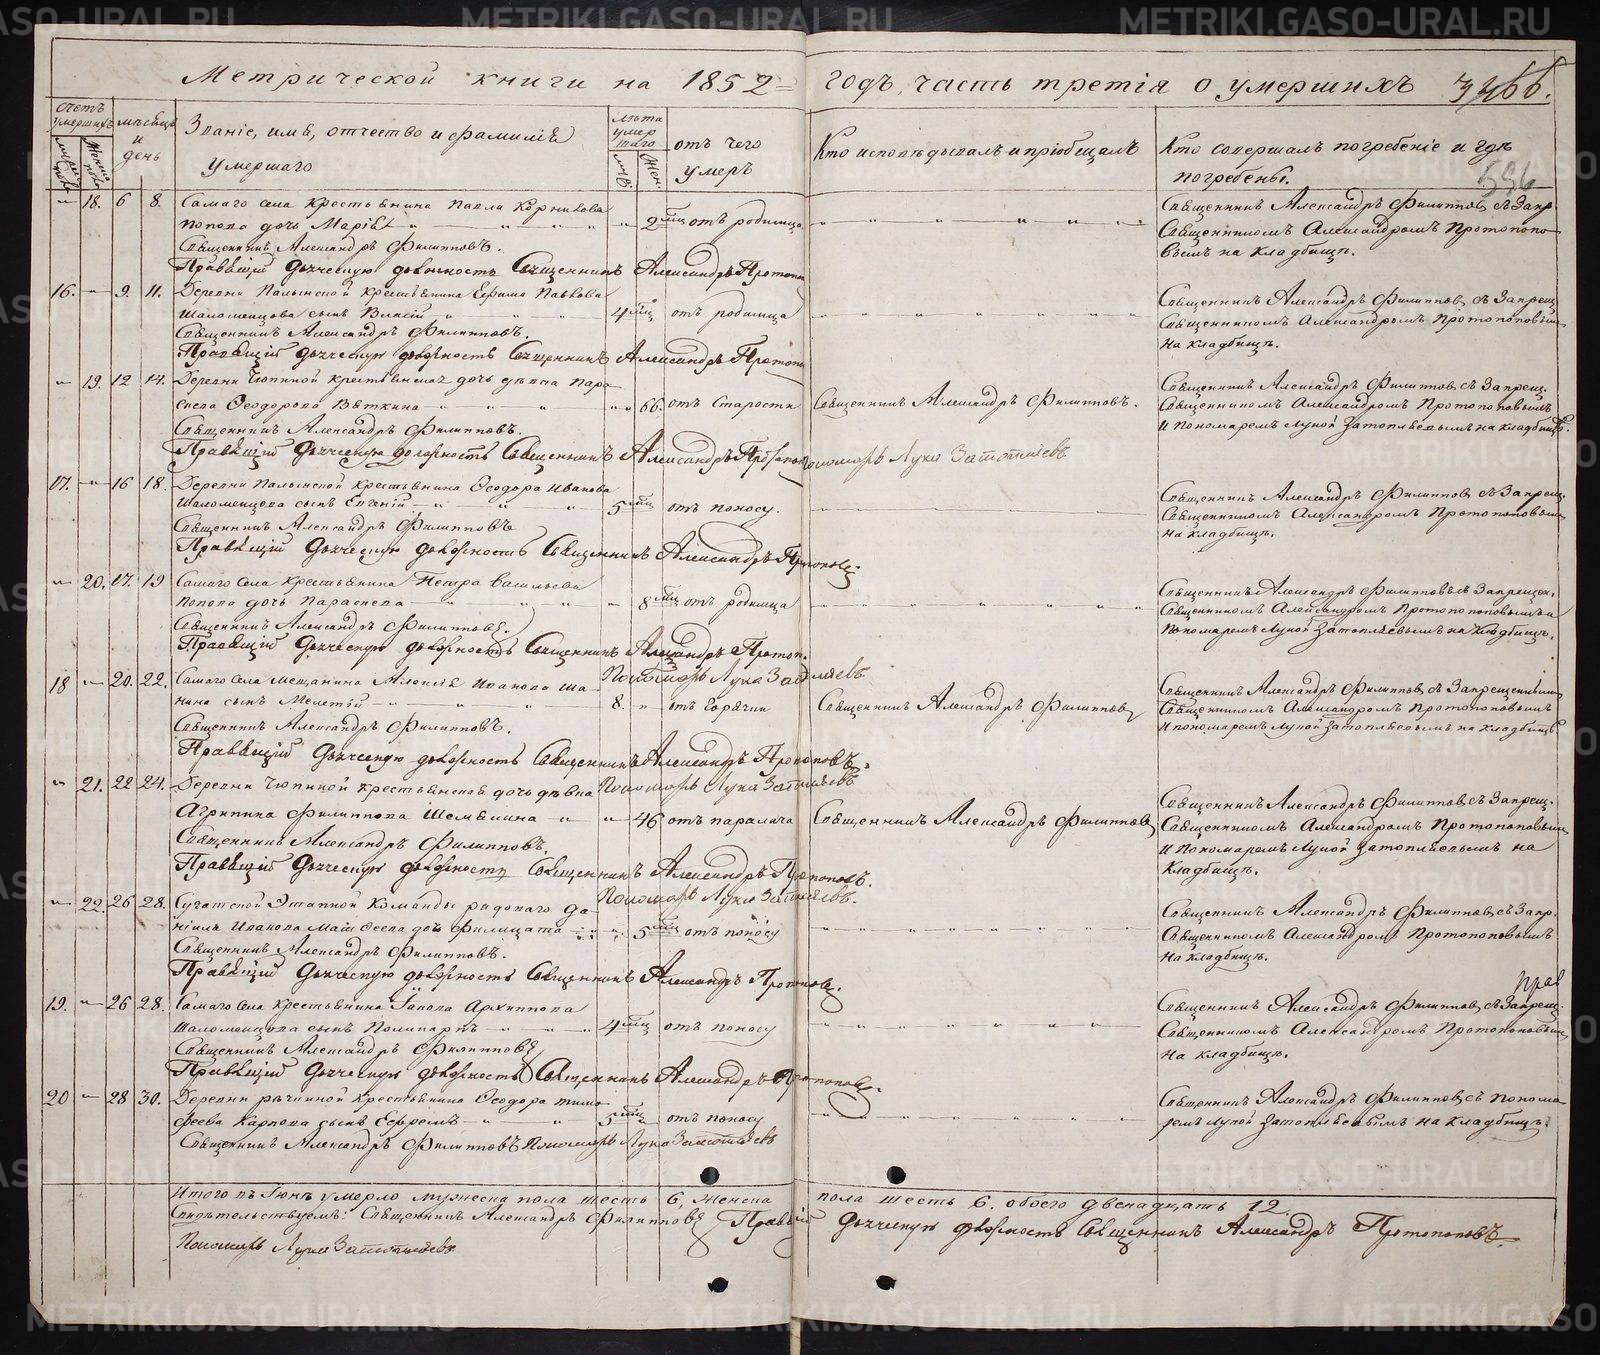 Метрической книги на 1852 = годъ, часть третія о умершихъ
Счетъ умершихъ
Мѣсяцъ и день
Званіе, имя, отчество и фамилія умершаго
Лѣта умершаго
отъ чего умеръ
Кто исповѣдывалъ и пріобщалъ
Кто совершалъ погребеніе и гдѣ погребены.
586
18. 6 8. Самаго села крестьянина Павла Корнилова
Попова дочь Марія 2 мц отъ родимца
Священникъ Александръ Филипповъ съ Запр.
Священникомъ Александромъ Протопопо-
вымъ на кладбищѣ.
Священникъ Александръ Филипповъ.
Правящій Дьяческую должность Священникъ Александръ Протопоп
16. 9. 11. Деревни крестьянина Ефима Павлова
Шаломенцова сынъ 4 мц отъ родимца
Священникъ Александръ Филипповъ съ Запрещ.
Священникомъ Александромъ Протопоповымъ
на кладбищѣ.
Священникъ Александръ Филипповъ.
Правящій Дьяческую должность Священникъ Александръ Протопоп
19. 12 14. Деревни Чюпиной крестьянская дочь дѣвка Пара-
скева Ѳеодорова Вяткина 66. отъ старости
Священникъ Александръ Филипповъ.
Священникъ Александръ Филипповъ съ Запрещ.
Священникомъ Александромъ Протопоповымъ
и Пономаремъ Лукой Затопляевымъ на кладбищѣ.
Священникъ Александръ Филипповъ.
Правящій Дьяческую должность Священникъ Александръ Протопоп
Пономарь Лука Затопляевъ
17. 16 18. Деревни крестьянина Ѳеодора Иванова
Шаломенцова сынъ Евгеній 5 мц отъ поносу.
Священникъ Александръ Филипповъ съ Запрещ.
Священникомъ Александромъ Протопоповымъ
на кладбищѣ.
Священникъ Александръ Филипповъ
Правящій Дьяческую должность Священникъ Александръ Протопоповъ
20. 17. 19 Самаго села крестьянина Петра Васильева
Попова дочь Параскева 8 мц отъ родимца
Священникъ Александръ Филипповъ съ Запрещен.
Священникомъ Александромъ Протопоповымъ и
Пономаремъ Лукой Затопляевымъ на кладбищѣ.
Священникъ Александръ Филипповъ.
Правящій Дьяческую должность Священникъ Александръ Протопоп.
Пономарь Лука Затопляевъ
18 20. 22. Самаго села мещанина Алексія Иванова Ша-
нина сынъ Мелетій 8. отъ горячки
Священникъ Александръ Филипповъ
Священникъ Александръ Филипповъ съ Запрещеннымъ
Священникомъ Александромъ Протопоповымъ
и пономаремъ Лукой Затопляевымъ на кладбищѣ
Священникъ Александръ Филипповъ.
Правящій Дьяческую должность Священникъ Александръ Протопоповъ.
Пономарь Лука Затопляевъ
21. 22 24. Деревни Чюпиной крестьянская дочь дѣвка
Агрипина Филиппова Шемякина 46 отъ паралича
Священникъ Александръ Филипповъ
Священникъ Александръ Филипповъ съ Запрещ.
Священникомъ Александромъ Протопоповымъ
и Пономаремъ Лукой Затопляевымъ на
кладбищѣ.
Священникъ Александръ Филипповъ.
Правящій Дьяческую должность Священникъ Александръ Протопоповъ.
Пономарь Лука Затопляевъ.
22. 26 28. Сугатской Этапной Команды рядоваго Да-
ніила Иванова дочь Филицата 5 мц отъ поносу
Священникъ Александръ Филипповъ съ Запр.
Священникомъ Александромъ Протопоповымъ
на кладбищѣ.
Священникъ Александръ Филипповъ.
Правящій Дьяческую должность Священникъ Александръ Протопоповъ.
19. 26 28. Самаго села крестьянина Іакова Архиппова
Шаломенцова сынъ Поликарпъ 4 мц отъ поносу
Священникъ Александръ Филипповъ съ Запрещ.
Священникомъ Александромъ Протопоповымъ
на кладбищѣ.
Священникъ Александръ Филипповъ
Правящій Дьяческую должность Священникъ Александръ Протопоповъ.
20 28 30. Деревни рѣчкиной крестьянина Ѳеодора Тимо-
феева Карпова сынъ Ефремъ 5 мц отъ поносу
Священникъ Александръ Филипповъ съ Понома-
ремъ Лукой Затопляевымъ на кладбищѣ.
Священникъ Александръ Филипповъ Пономарь Лука Затопляевъ
Итого въ Іюнѣ умерло мужеска пола шесть 6, женска пола шесть 6. обоего двенадцать 12.
Свидѣтельствуемъ: Священникъ Александръ Филипповъ Правящій Дьяческую должность Священникъ Александръ Протопоповъ.
Пономарь Лука Затопляевъ
METRIKI.GASO-URAL.RU